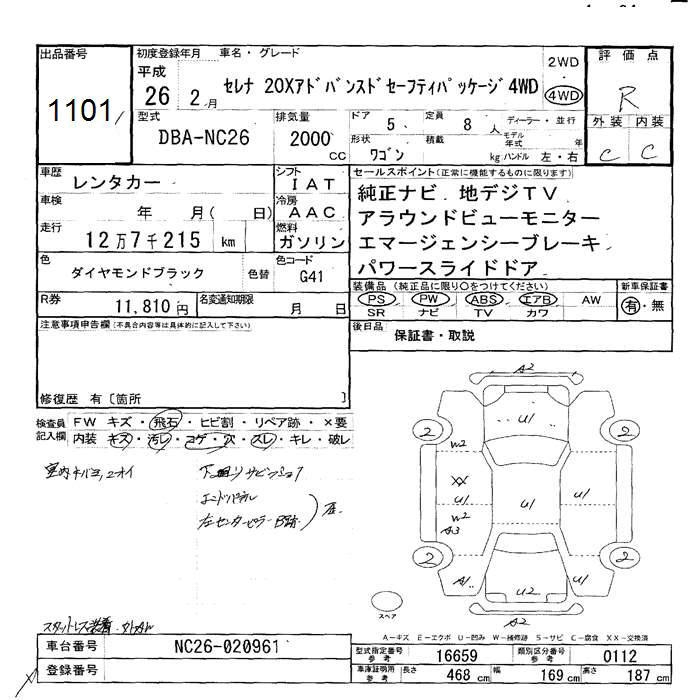 出品番号
1101
初度登録年月 車名・グレード
平成
26 2月
セレナ 20Xアドバンスドセーフティパッケージ4WD
2WD
4WD
評価点
R
外装 内装
C C
型式
DBA-NC26
排気量
2000
CC
ドア 5 定員 8人
形状 ワゴン 積載 kg
ディーラー・並行
モデル年式 年
ハンドル 左・右
車歴 レンタカー
シフト IAT
車検 年 月(日)
冷房 AAC
走行 12万7千215 km
燃料 ガソリン
セールスポイント(正常に機能するものに限ります)
純正ナビ 地デジTV
アラウンドビューモニター
エマージェンシーブレーキ
パワースライドドア
色 ダイヤモンドブラック 色替
色コード G41
装備品 (純正品に限り○をつけてください)
PS PW ABS エアB AW
SR ナビ TV カワ
新車保証書
有・無
R券 11,810円 名変通知期限 月 日
後日品 保証書・取説
注意事項申告欄(不具合内容等は具体的に記入して下さい)
修復歴 有〔箇所 〕
検査員記入欄
FW キズ・飛石・ヒビ割・リペア跡・×要
内装 キズ・汚レ・コゲ・穴・スレ・キレ・破レ
下回りサビ
エンドパネル
左センターピラー
A2
U1
2 2
W2
XX
U1 U1 U1
W2
A3
2 2
A1 U2 U1
A2
スペア
スタットレス装着
A-キズ E-エクボ U-凹み W-補修跡 S-サビ C-腐食 XX-交換済
車台番号 NC26-020961
登録番号
型式指定番号 参考 16659
類別区分番号 参考 0112
車庫証明用 参考 長さ 468 cm 幅 169 cm 高さ 187 cm